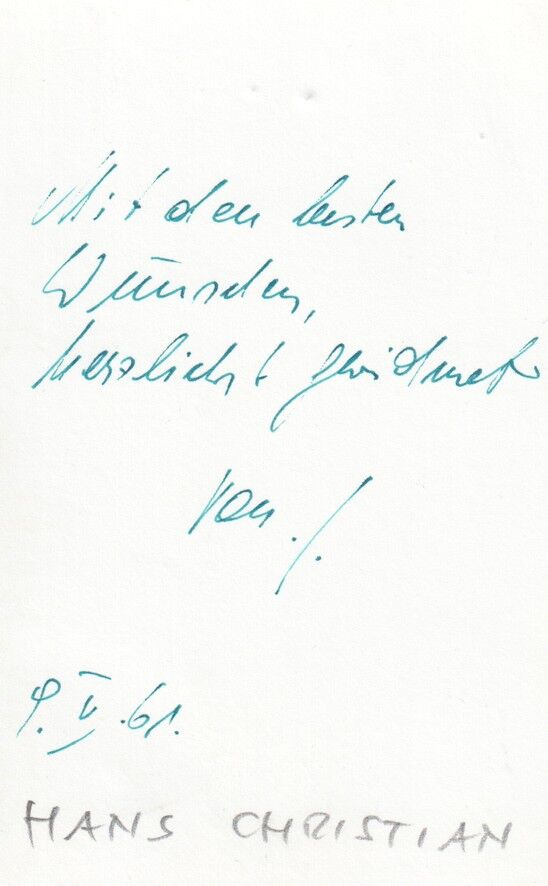 Mit den besten
Wünschen,
herzlichst gewidmet
von
9. V. 61.
HANS CHRISTIAN